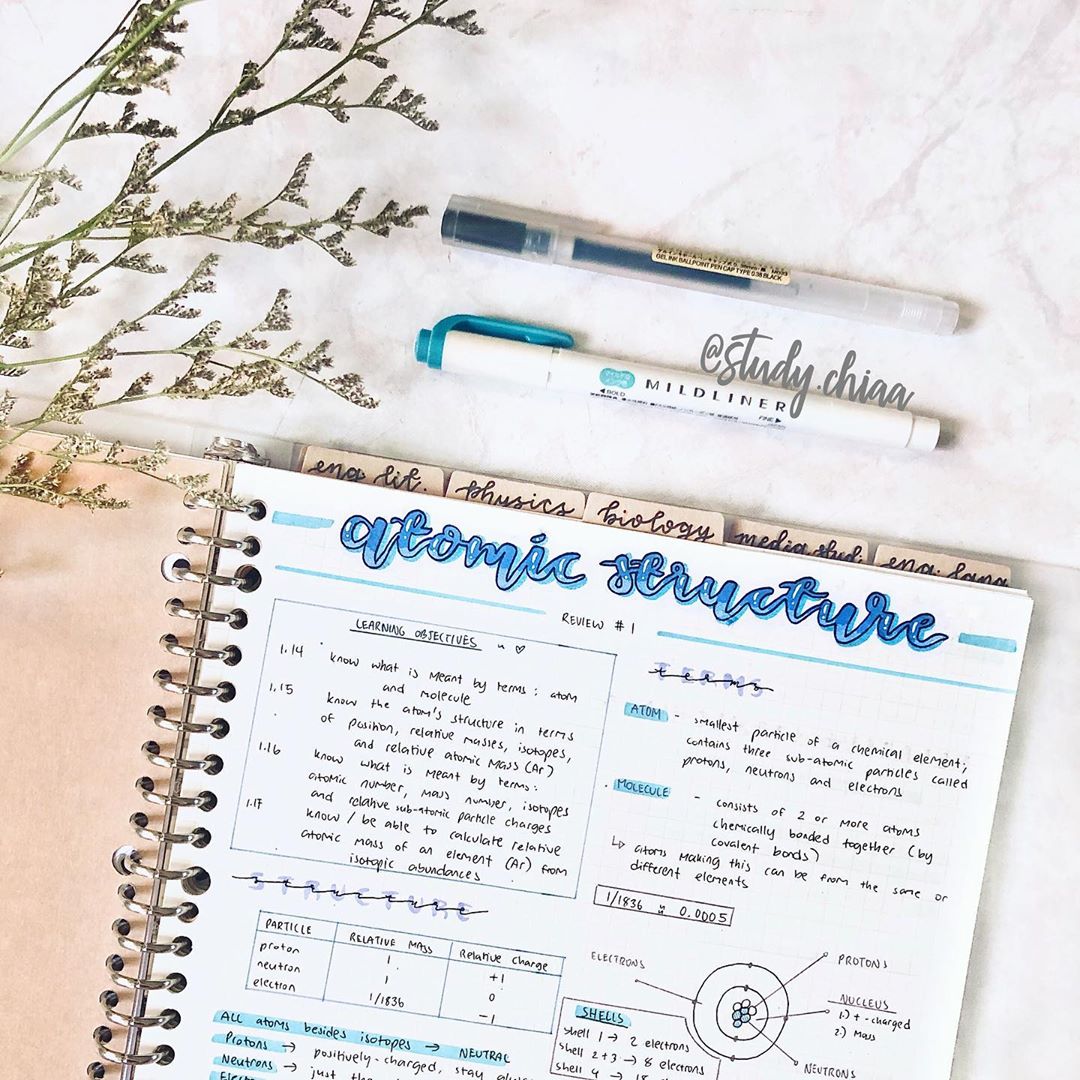 GEL INK BALLPOINT PEN CAP TYPE 0.38 BLACK
@study.chiaa
MILDLINER
◀BOLD
FINE▶
eng lit.
physics
biology
media stud.
eng. lang
atomic structure
REVIEW #1
LEARNING OBJECTIVES
1.14 know what is meant by terms: atom
and molecule
1.15 know the atom's structure in terms
of position, relative masses, isotopes,
and relative atomic mass (Ar)
1.16 know what is meant by terms:
atomic number, mass number, isotopes
and relative sub-atomic particle charges
1.17 know / be able to calculate relative
atomic mass of an element (Ar) from
isotopic abundances
TERMS
terms
ATOM - smallest particle of a chemical element;
contains three sub-atomic particles called
protons, neutrons and electrons
MOLECULE - consists of 2 or more atoms
chemically bonded together (by
covalent bonds)
↳ atoms making this can be from the same or
different elements
1/1836 ≈ 0.0005
STRUCTURE
structure
PARTICLE RELATIVE MASS Relative charge
proton 1 +1
neutron 1 0
electron 1/1836 -1
ALL atoms besides isotopes → NEUTRAL
Protons → positively-charged, stay
Neutrons → just
ELECTRONS
PROTONS
NUCLEUS
1.) + -charged
2) Mass
NEUTRONS
SHELLS
shell 1 → 2 electrons
shell 2+3 → 8 electrons
shell 4 → 18